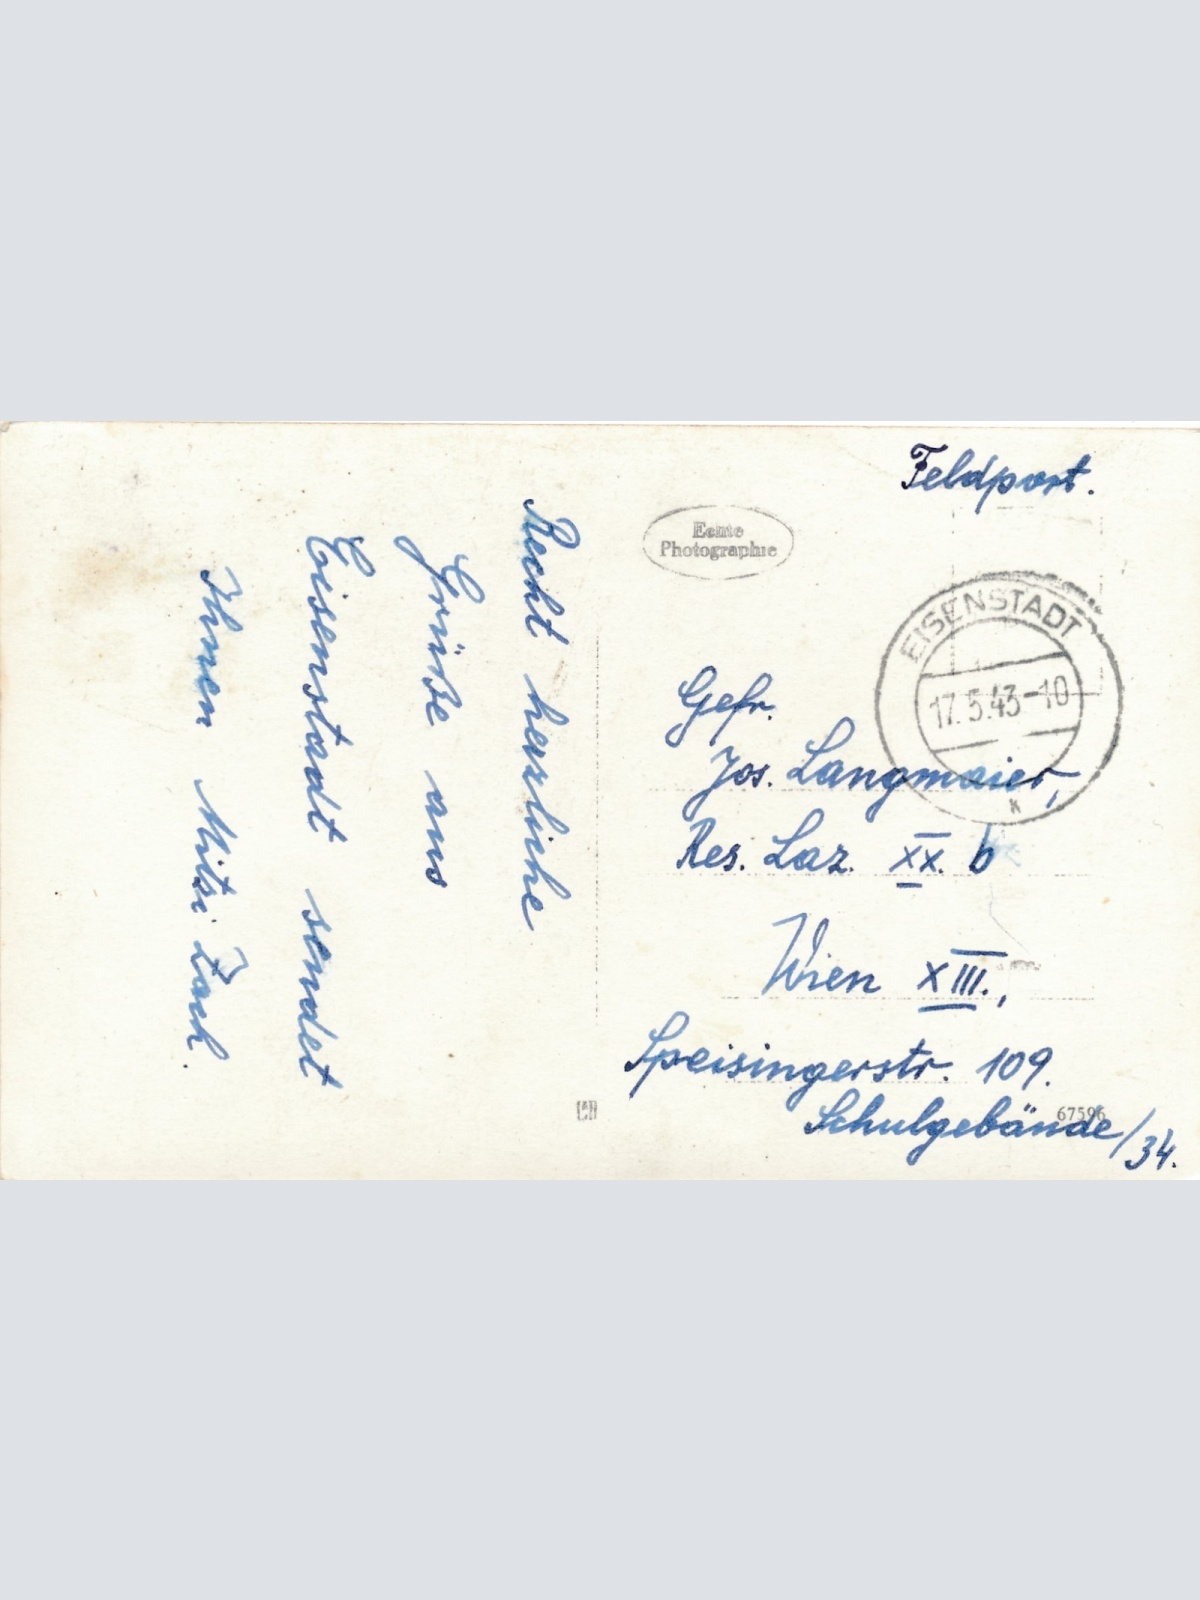 Feldpost.
Echte
Photographie
EISENSTADT
17.5.43-10
k
Gefr.
Jos. Langmaier,
Res. Laz. XX. b
Wien XIII.,
Speisingerstr. 109.
Schulgebäude/34.
67596
Recht herzliche
Grüße aus
Eisenstadt sendet
Ihnen Mitzi Zach.